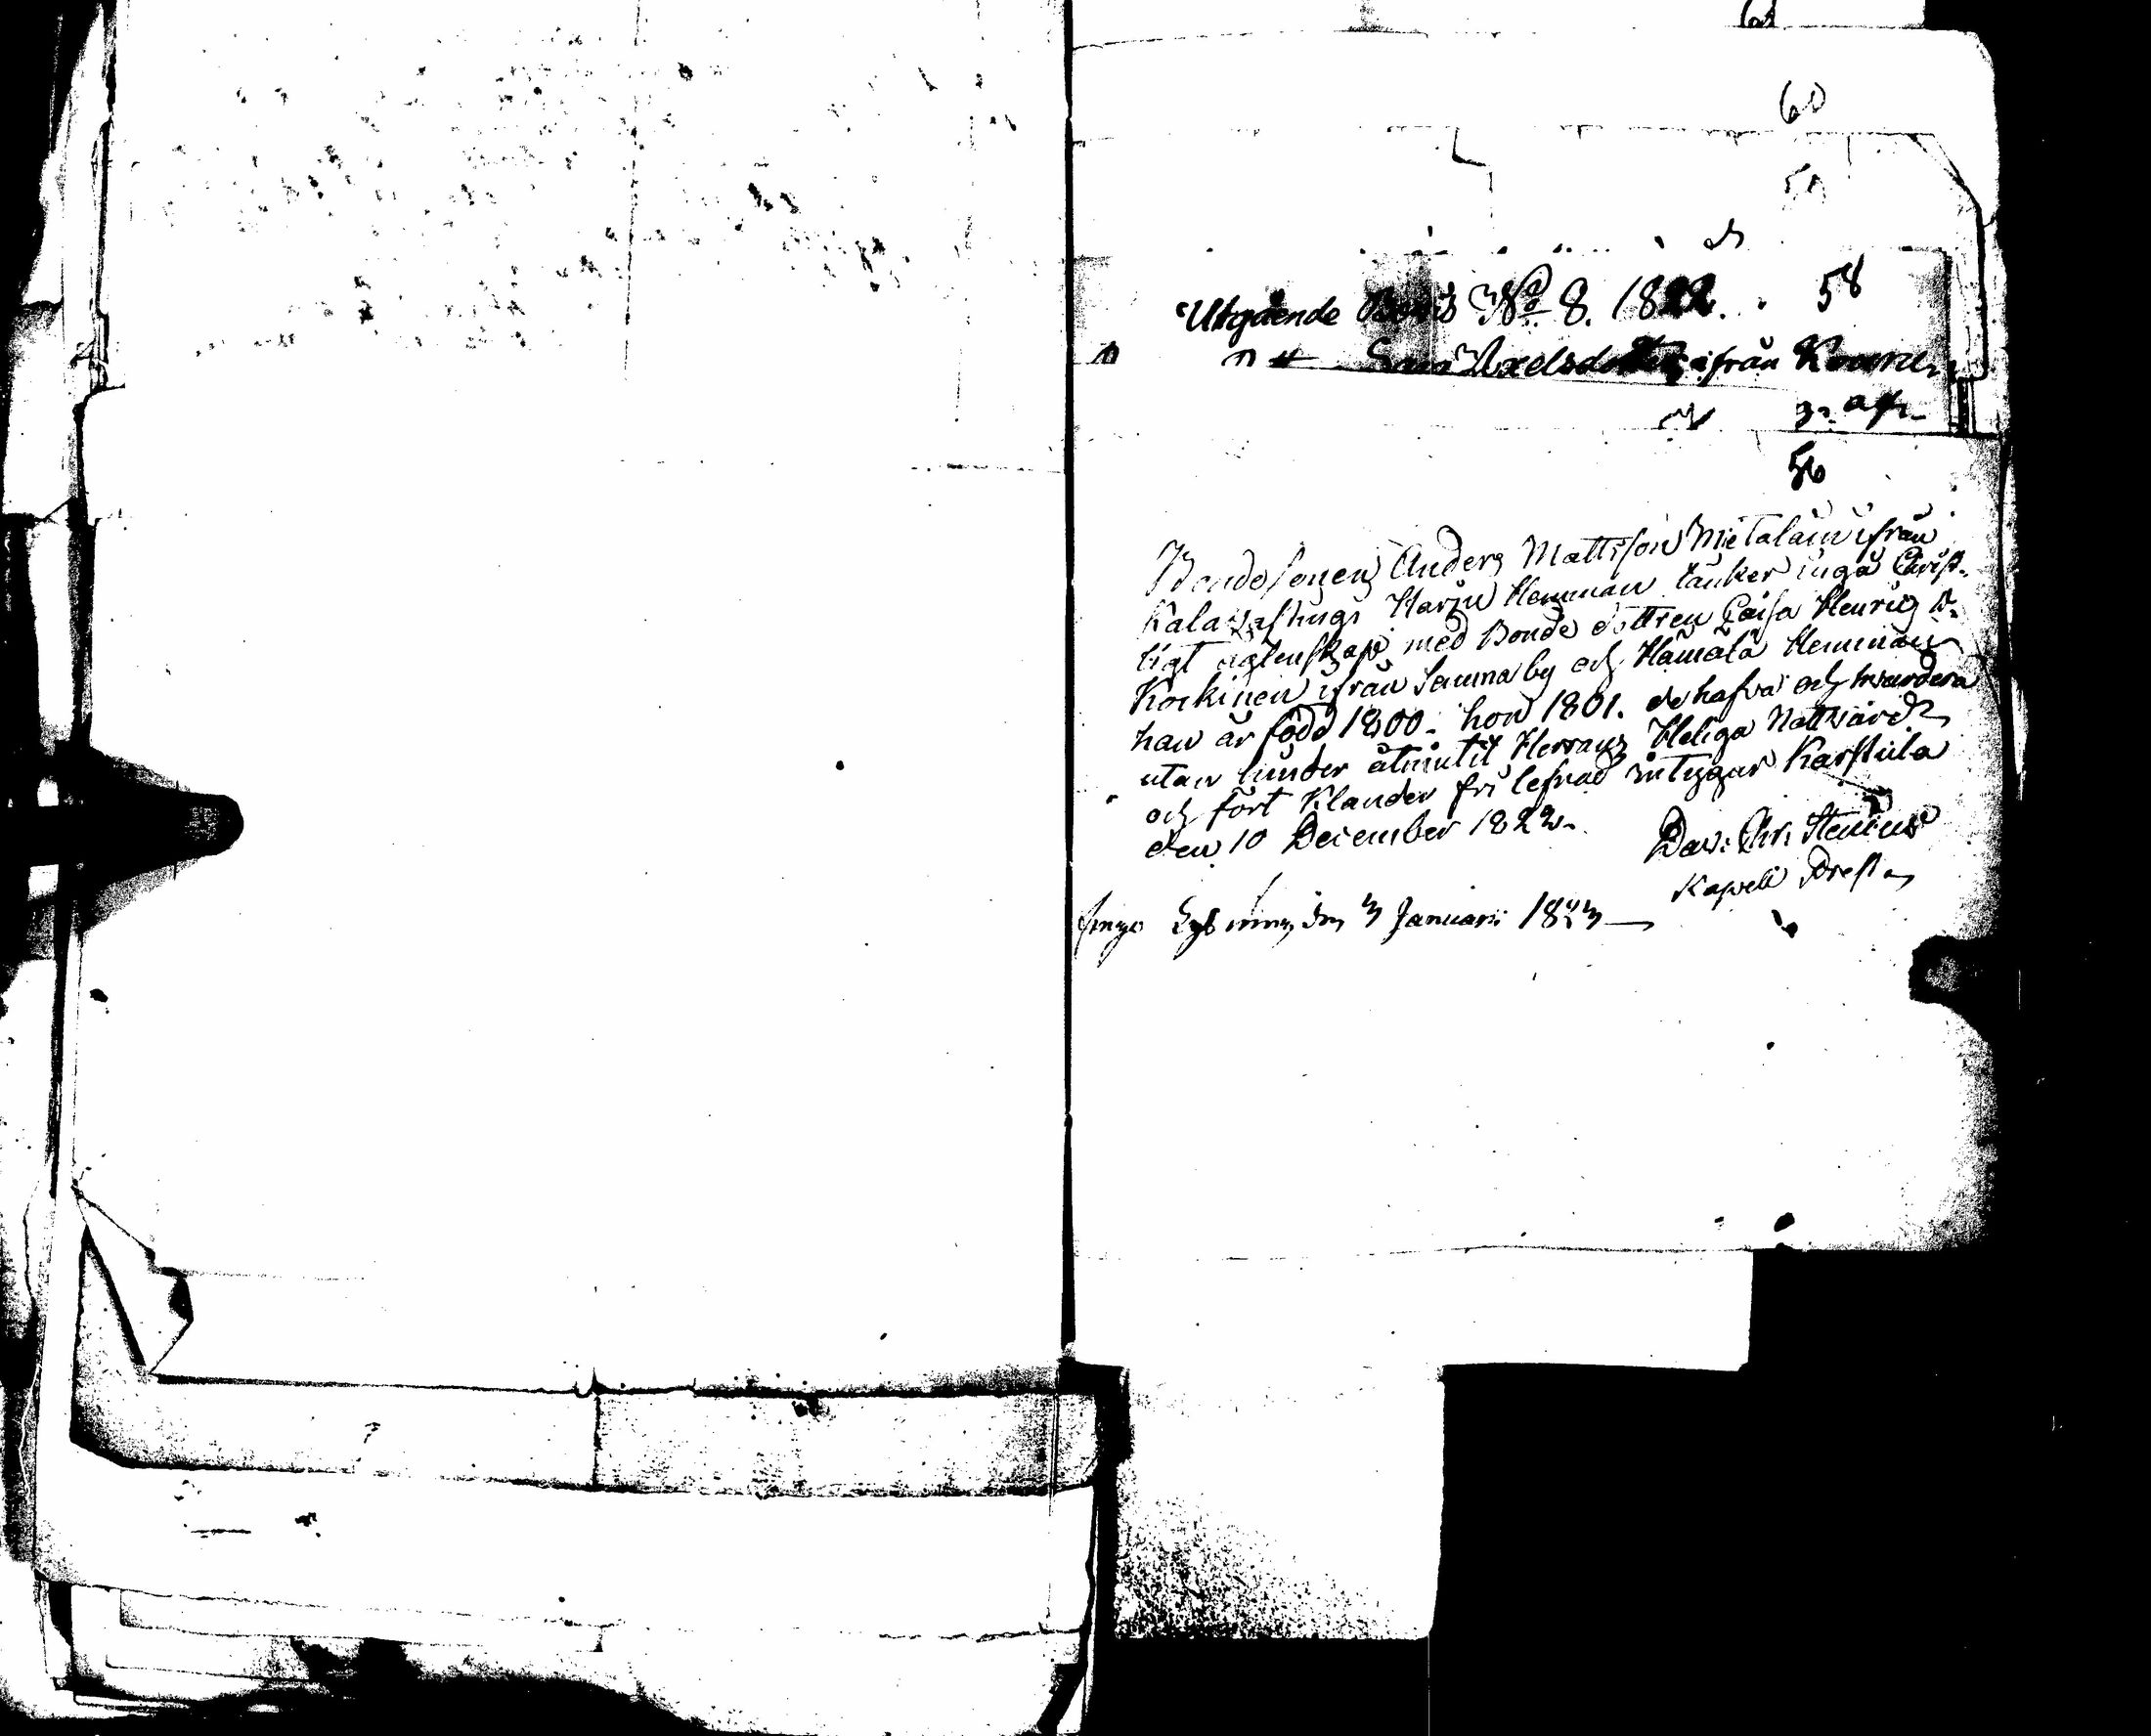 60
58
Utgående Bevis No 8. 1822.
Axelsdotter ifrån
56
Bondesonen Anders Mattsson Mietalain ifrån
Harju Hemman tänker ingå Christ-
ligt ägtenskap med Bonde dottren Caisa Henrics D.
Korkinen ifrån samma by och Hämälä Hemman
han är född 1800. hon 1801. de hafva och hvardera
utan hinder åtniutit Herrans Heliga Nattvard
och fört Klander fri lefnad intygar Karstula
den 10 December 1822.
Dav: Chr: Stenius
Kapell Prest
den 3 Januarii 1823